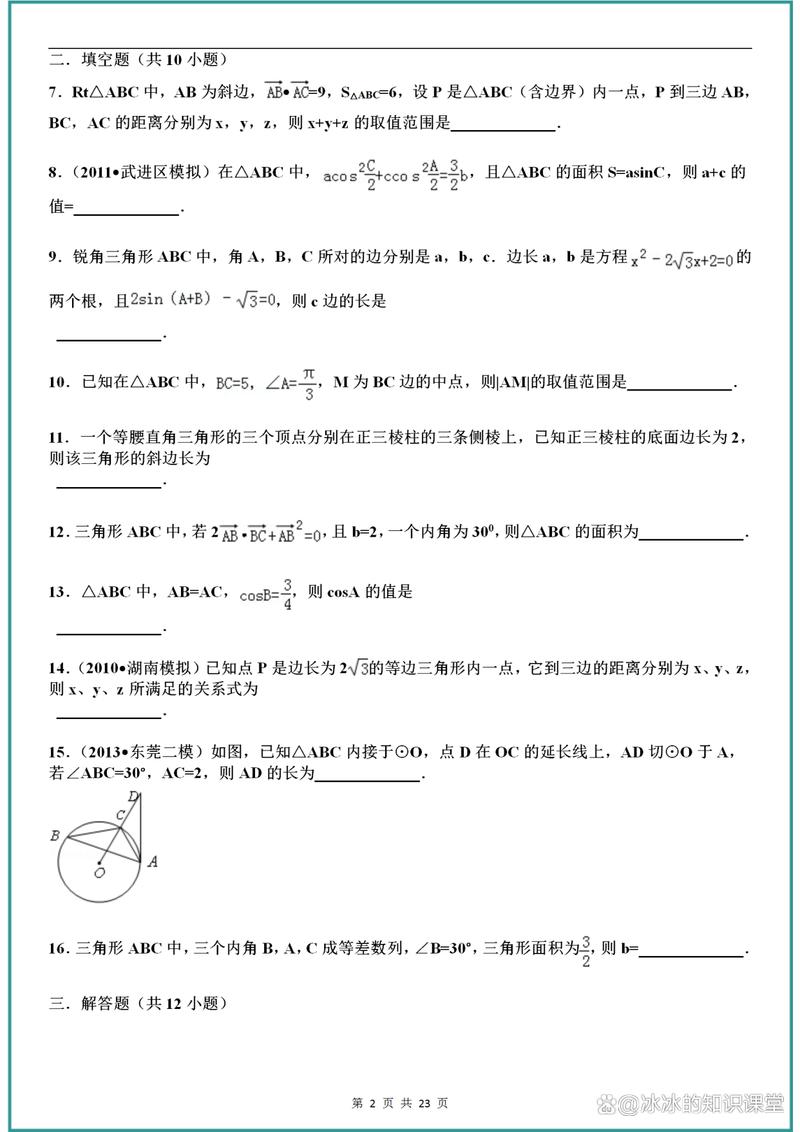 二．填空题（共10小题）
7．Rt△ABC中，AB为斜边，$\overrightarrow{AB}•\overrightarrow{AC}$=9，S△ABC=6，设P是△ABC（含边界）内一点，P到三边AB，
BC，AC的距离分别为x，y，z，则x+y+z的取值范围是＿＿＿＿．
8．（2011•武进区模拟）在△ABC中，$acos^2\frac{C}{2}+ccos^2\frac{A}{2}=\frac{3}{2}b$，且△ABC的面积S=asinC，则a+c的
值=＿＿＿＿．
9．锐角三角形ABC中，角A，B，C所对的边分别是a，b，c．边长a，b是方程$x^2-2\sqrt{3}x+2=0$的
两个根，且$2sin（A+B）-\sqrt{3}=0$，则c边的长是
＿＿＿＿．
10．已知在△ABC中，$BC=5，∠A=\frac{π}{3}$，M为BC边的中点，则|AM|的取值范围是＿＿＿＿．
11．一个等腰直角三角形的三个顶点分别在正三棱柱的三条侧棱上，已知正三棱柱的底面边长为2，
则该三角形的斜边长为
＿＿＿＿．
12．三角形ABC中，若2$\overrightarrow{AB}•\overrightarrow{BC}+\overrightarrow{AB}^2=0$，且b=2，一个内角为30⁰，则△ABC的面积为＿＿＿＿．
13．△ABC中，AB=AC，$cosB=\frac{3}{4}$，则cosA的值是
＿＿＿＿．
14．（2010•湖南模拟）已知点P是边长为2$\sqrt{3}$的等边三角形内一点，它到三边的距离分别为x、y、z，
则x、y、z所满足的关系式为
＿＿＿＿．
15．（2013•东莞二模）如图，已知△ABC内接于⊙O，点D在OC的延长线上，AD切⊙O于A，
若∠ABC=30°，AC=2，则AD的长为＿＿＿＿．
D
C
B
A
O
16．三角形ABC中，三个内角B，A，C成等差数列，∠B=30°，三角形面积为$\frac{3}{2}$，则b=＿＿＿＿．
三．解答题（共12小题）
第 2 页 共 23 页
@冰冰的知识课堂